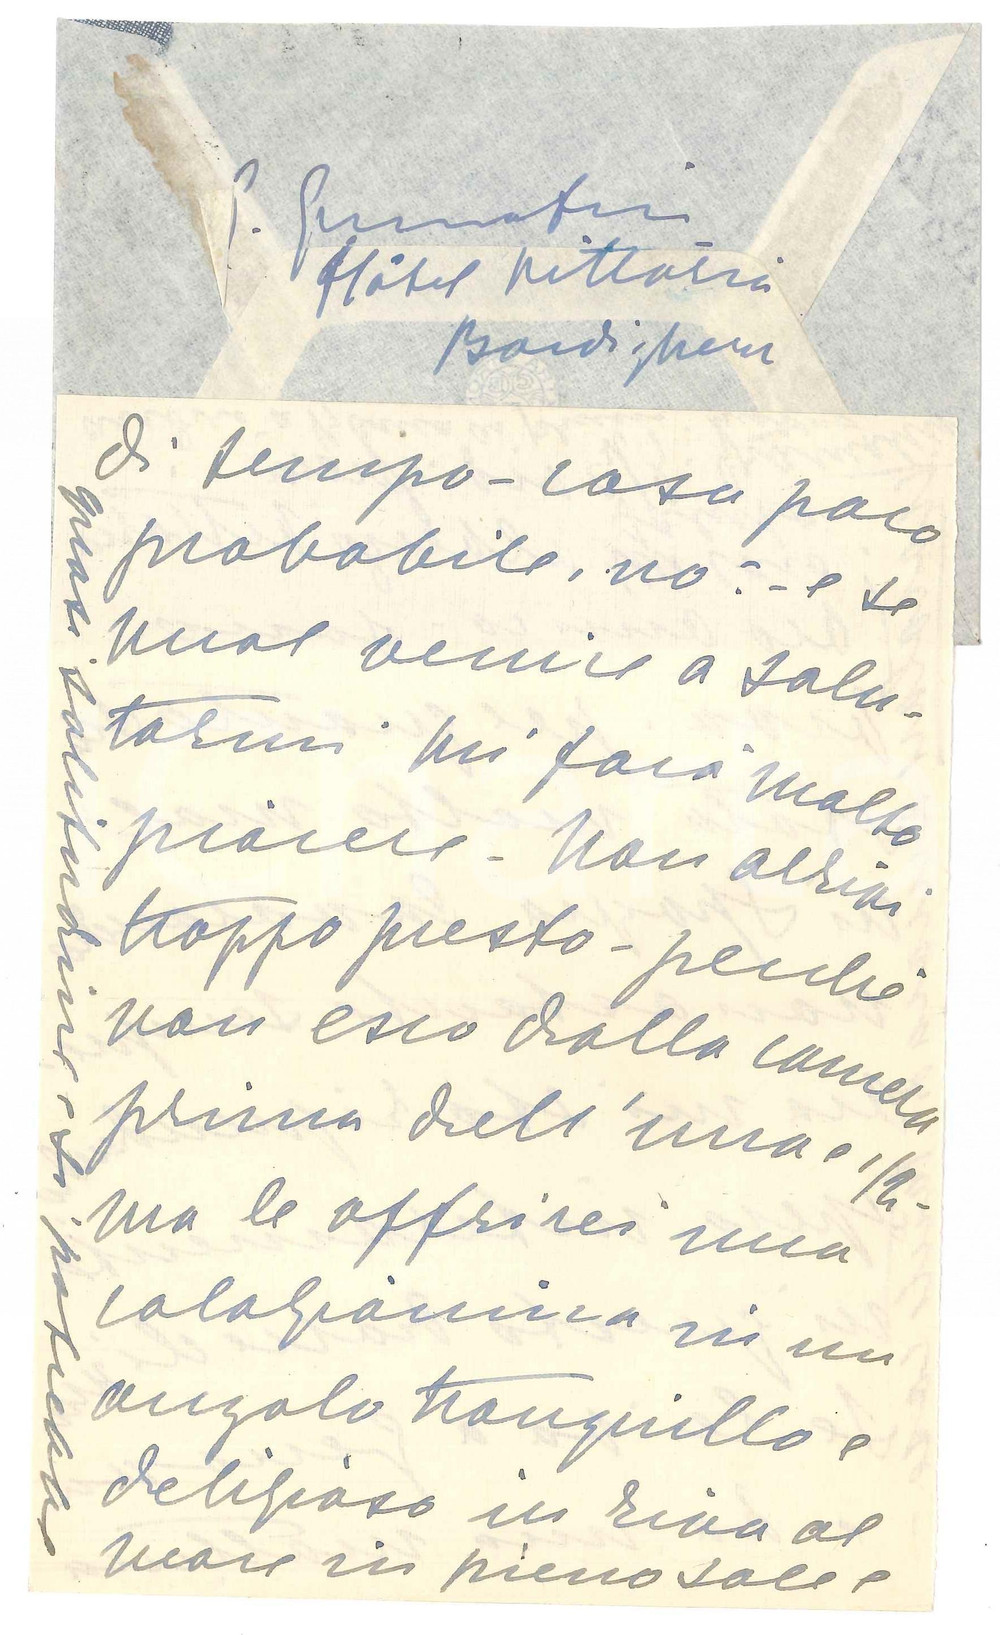 Hôtel Vittoria
Bordighera
di tempo - cosa poco
probabile, no? - e se
vuol venire a salu-
tarmi mi farà molto
piacere - Non arrivi
troppo presto - perché
non esco dalla camera
prima dell'una e 1/2 -
ma le offrirei una
colazioncina in un
angolo tranquillo e
delizioso in riva al
mare in pieno sole e
quasi solitudine - si potrebbe